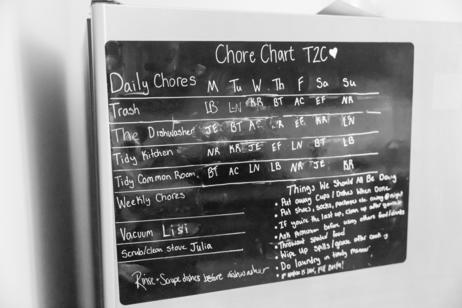 Chore Chart T2C♥
Daily Chores M Tu W Th F Sa Su
Trash LB LN KR BT AC EF NR
The Dishwasher JE BT AC EF KR LN
Tidy Kitchen NR KR JE EF LN BT LB
Tidy Common Room BT AC LN LB NR JE KR
Weekly Chores
Vacuum Lisi
Scrub/clean stove Julia
Rinse + Scrape dishes before dishwasher
Things We Should All Be Doing
• Put away Cups / Dishes When Done
• Put shoes, socks, packages etc. away @ night
• If you're the last up, clean up after
• Ask permission before using others food/drinks
• Throwout spoiled food
• Wipe up spills/grease after cooking
• Do laundry in timely manner